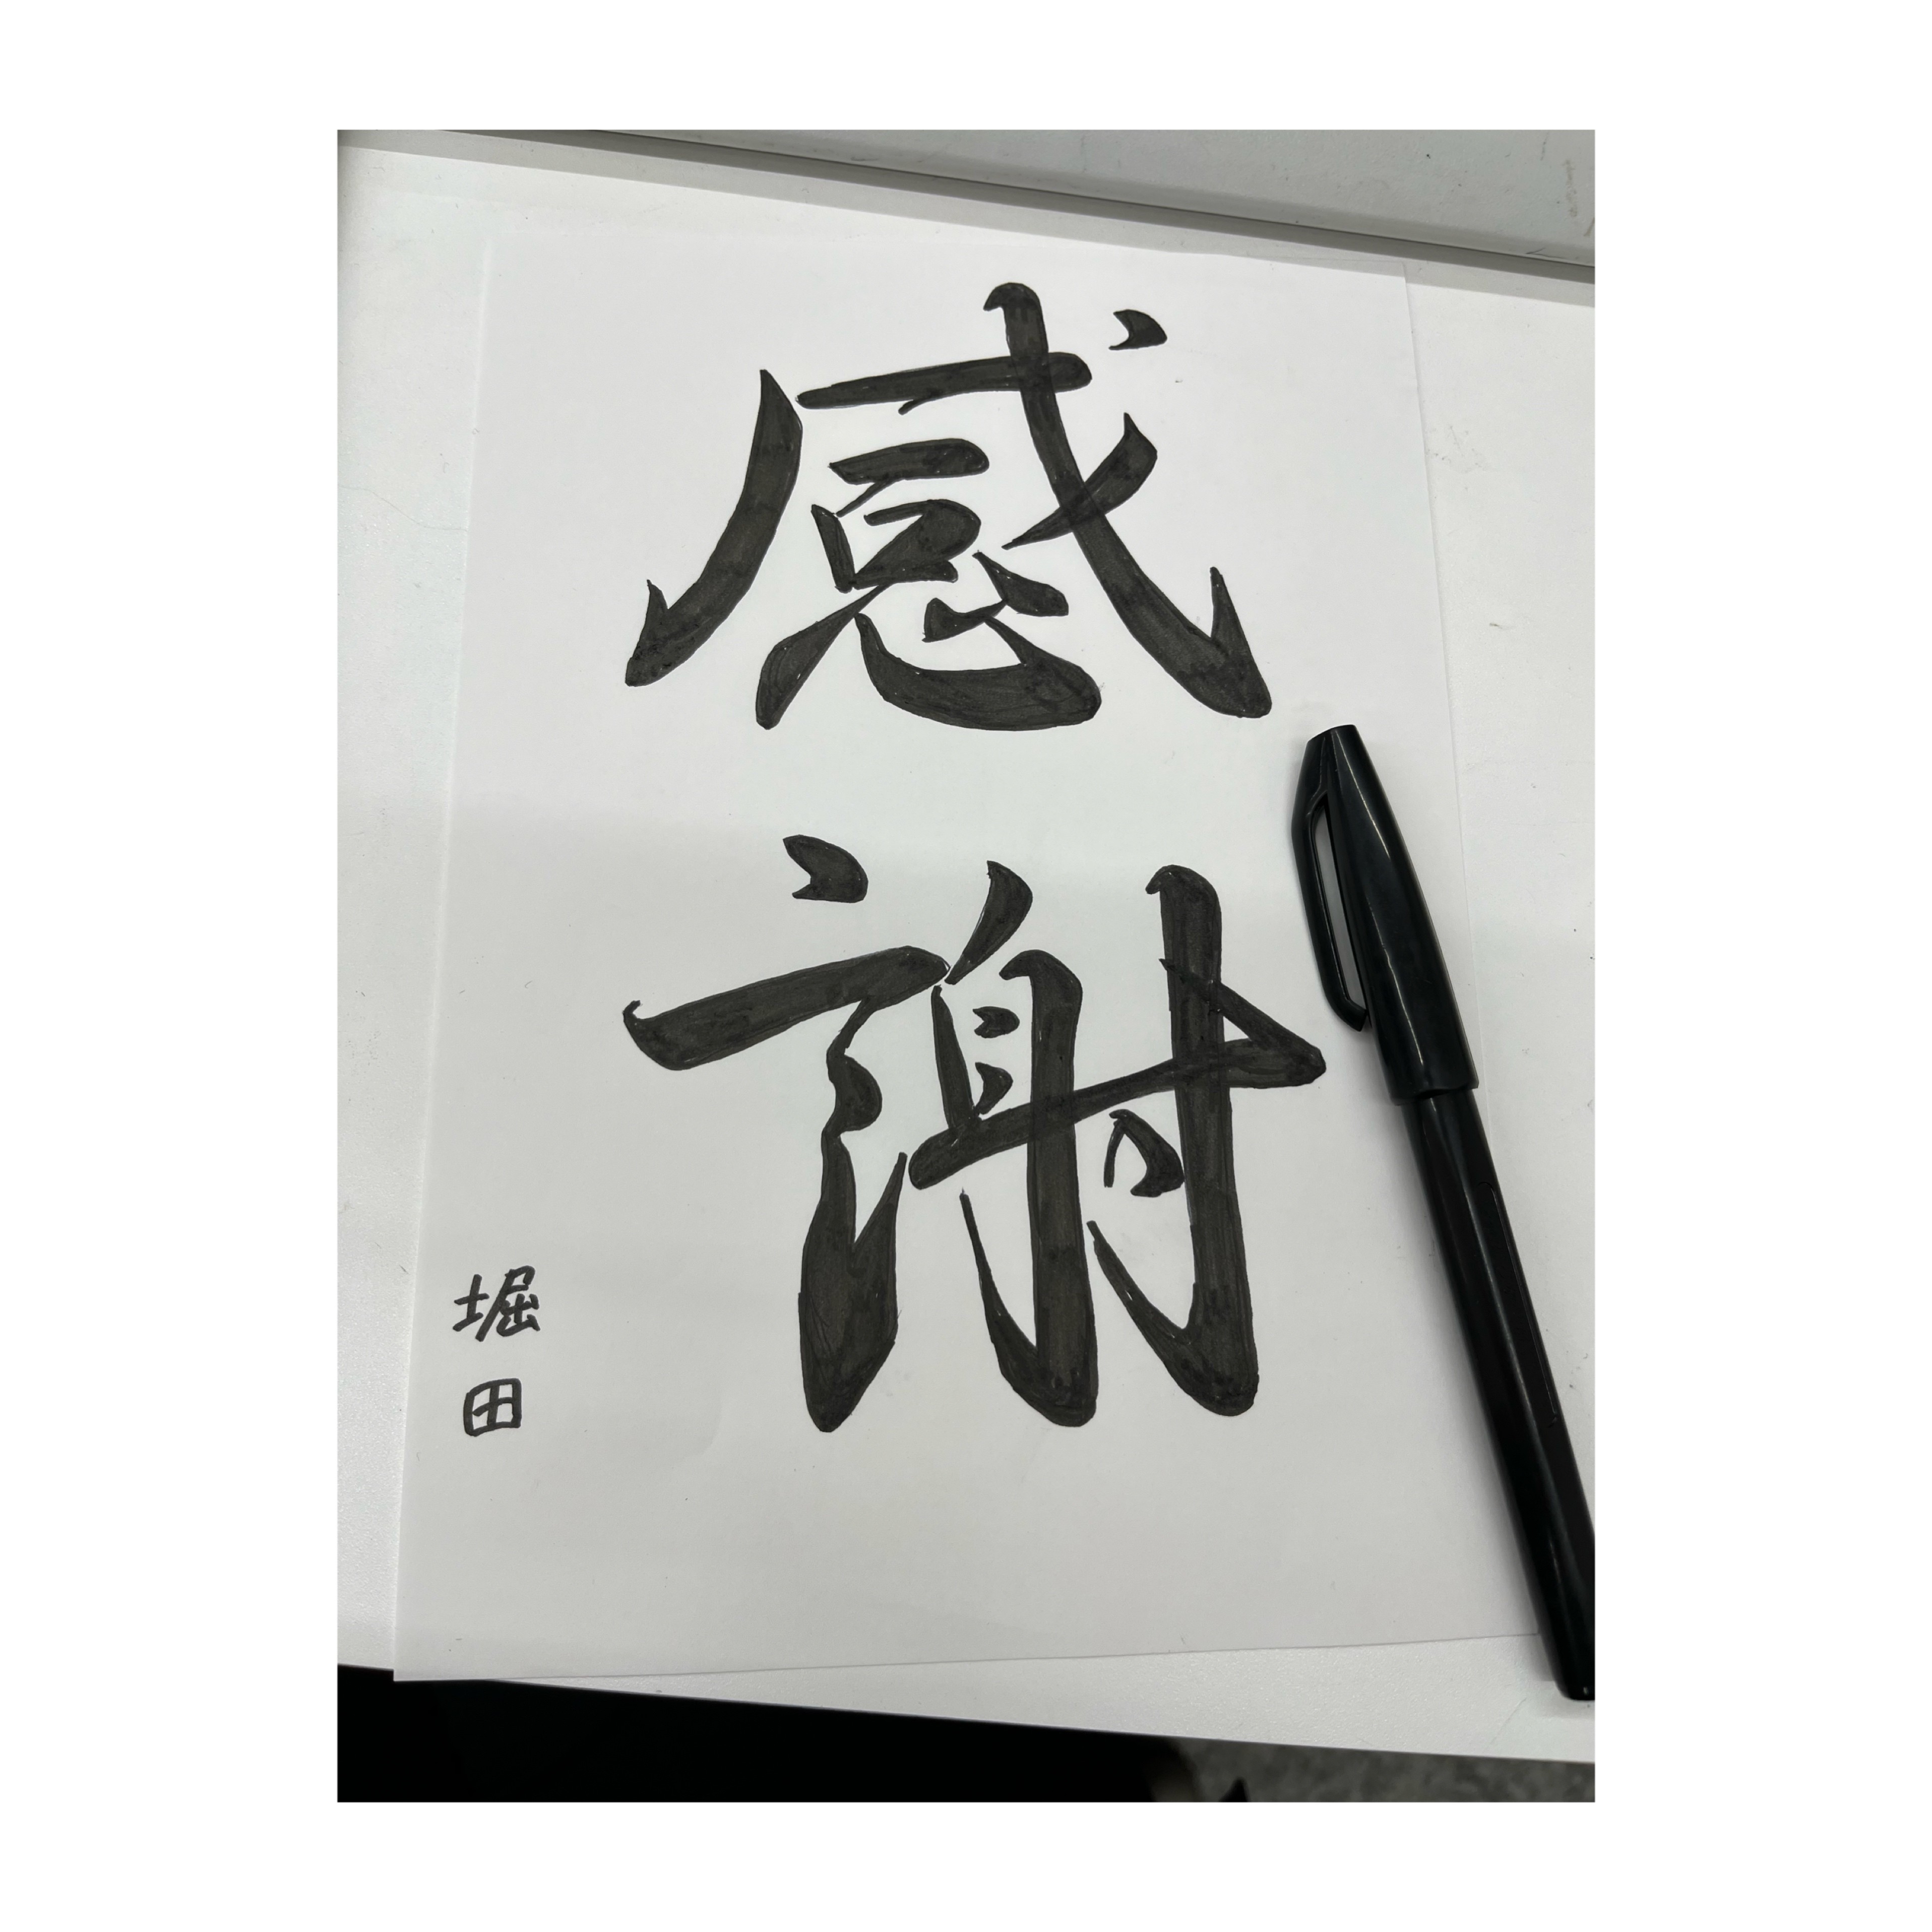 感謝
堀田